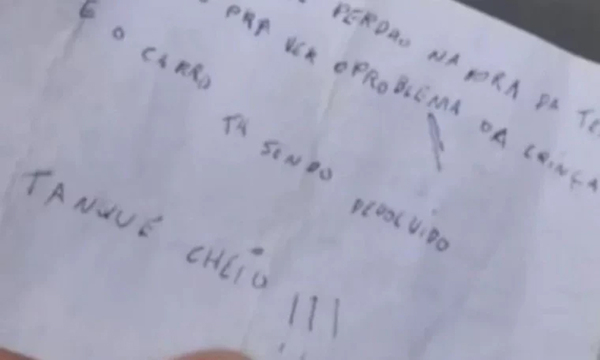 PERDÃO NA HORA DA TE
PRA VER O PROBLEMA DA CRINÇA
E O CARRO TA SENDO DEVOLVIDO
TANQUE CHEIO !!!